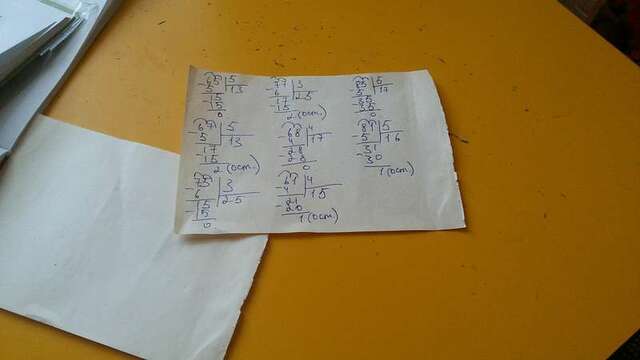 65 5
-5 13
15
-15
0
77 3
-6 25
17
-15
2 (ост.)
85 5
-5 17
35
-35
0
67 5
-5 13
17
-15
2 (ост.
68 4
-4 17
28
-28
0
81 5
-5 16
31
-30
1 (ост)
75 3
-6 25
15
-15
0
61 4
-4 15
21
-20
1 (ост)